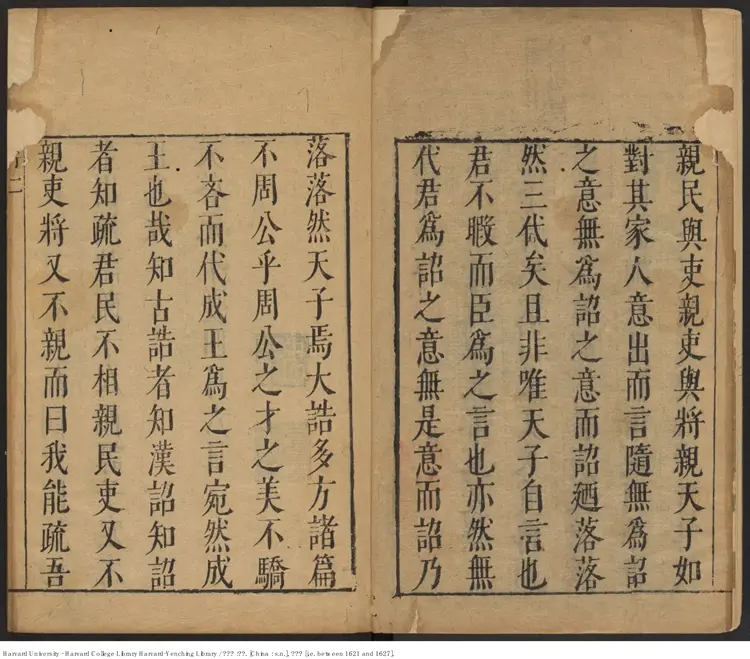 親民與吏親吏與將親天子如
對其家人意出而言隨無爲詔
之意無爲詔之意而詔廼落落
然三代矣且非唯天子自言也
君不暇而臣爲之言也亦然無
代君爲詔之意無是意而詔乃
落落然天子焉大誥多方諸篇
不周公乎周公之才之美不驕
不吝而代成王爲之言宛然成
王也哉知古誥者知漢詔知詔
者知疏君民不相親民吏又不
親吏將又不親而曰我能疏吾
二
Harvard University - Harvard College Library Harvard-Yenching Library / ??? :??. [China : s.n.], ??? [i.e. between 1621 and 1627].